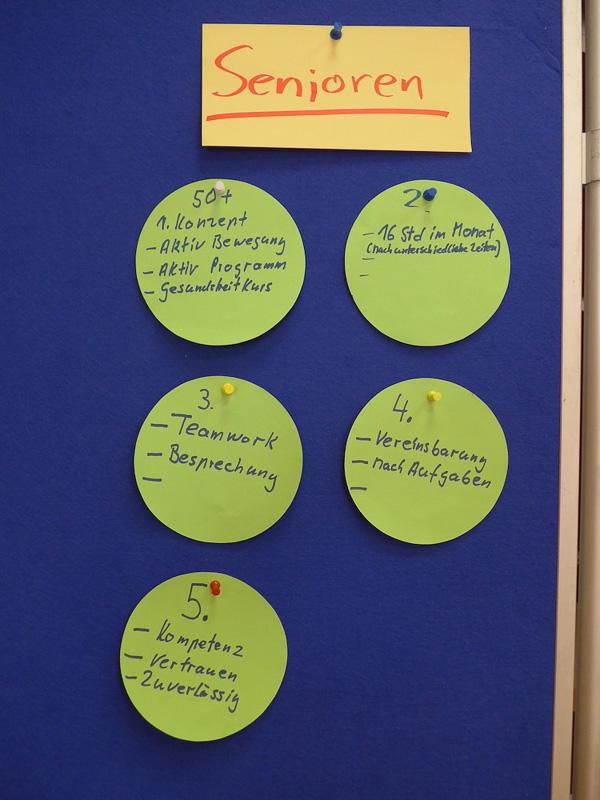 Senioren
50+
1. Konzept
- Aktiv Bewegung
- Aktiv Programm
- Gesundheitkurs
2.
- 16 Std im Monat
(nach unterschiedliche Zeiten)
-
-
3.
- Teamwork
- Besprechung
-
4.
- Vereinsbarung
- nach Aufgaben
-
5.
- Kompetenz
- Vertrauen
- Zuverlässig